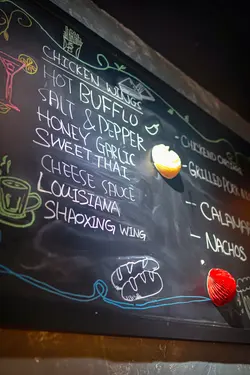 CHICKEN WINGS
HOT BUFFLO
SALT & PEPPER
HONEY GARLIC
SWEET THAI
CHEESE SAUCE
LOUISIANA
SHAOXING WING
- CHICKEN
- GRILLED
- CALAMAR
- NACHOS